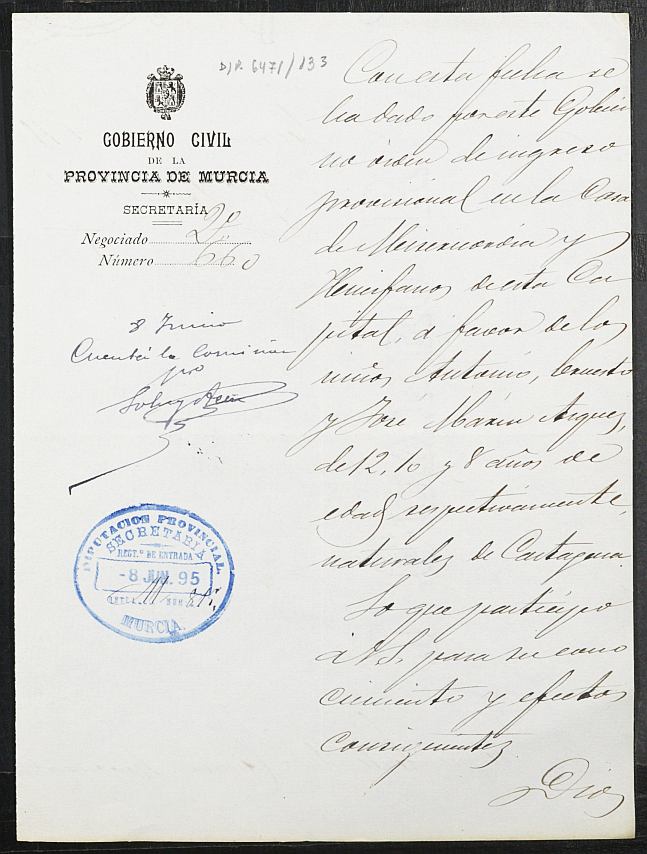 DIP. 6471/133
GOBIERNO CIVIL
DE LA
PROVINCIA DE MURCIA
SECRETARÍA
Negociado 2º
Número 660
8 Junio
Cuenta á la Comisión
pro
DIPUTACION PROVINCIAL.
SECRETARIA
REGT.º DE ENTRADA
-8 JUN. 95
MURCIA.
Con esta fecha se
ha dado por este Gobier
no orden de ingreso
provisional en la Casa
de Misericordia y
Huerfanos de esta Ca
pital, á favor de los
niños Antonio, Ernesto
y José Marin
de 12, 10 y 8 años de
edad respectivamente,
naturales de Cartagena.
Lo que participo
á V.S. para su cono
cimiento y efectos
consiguientes.
Dios